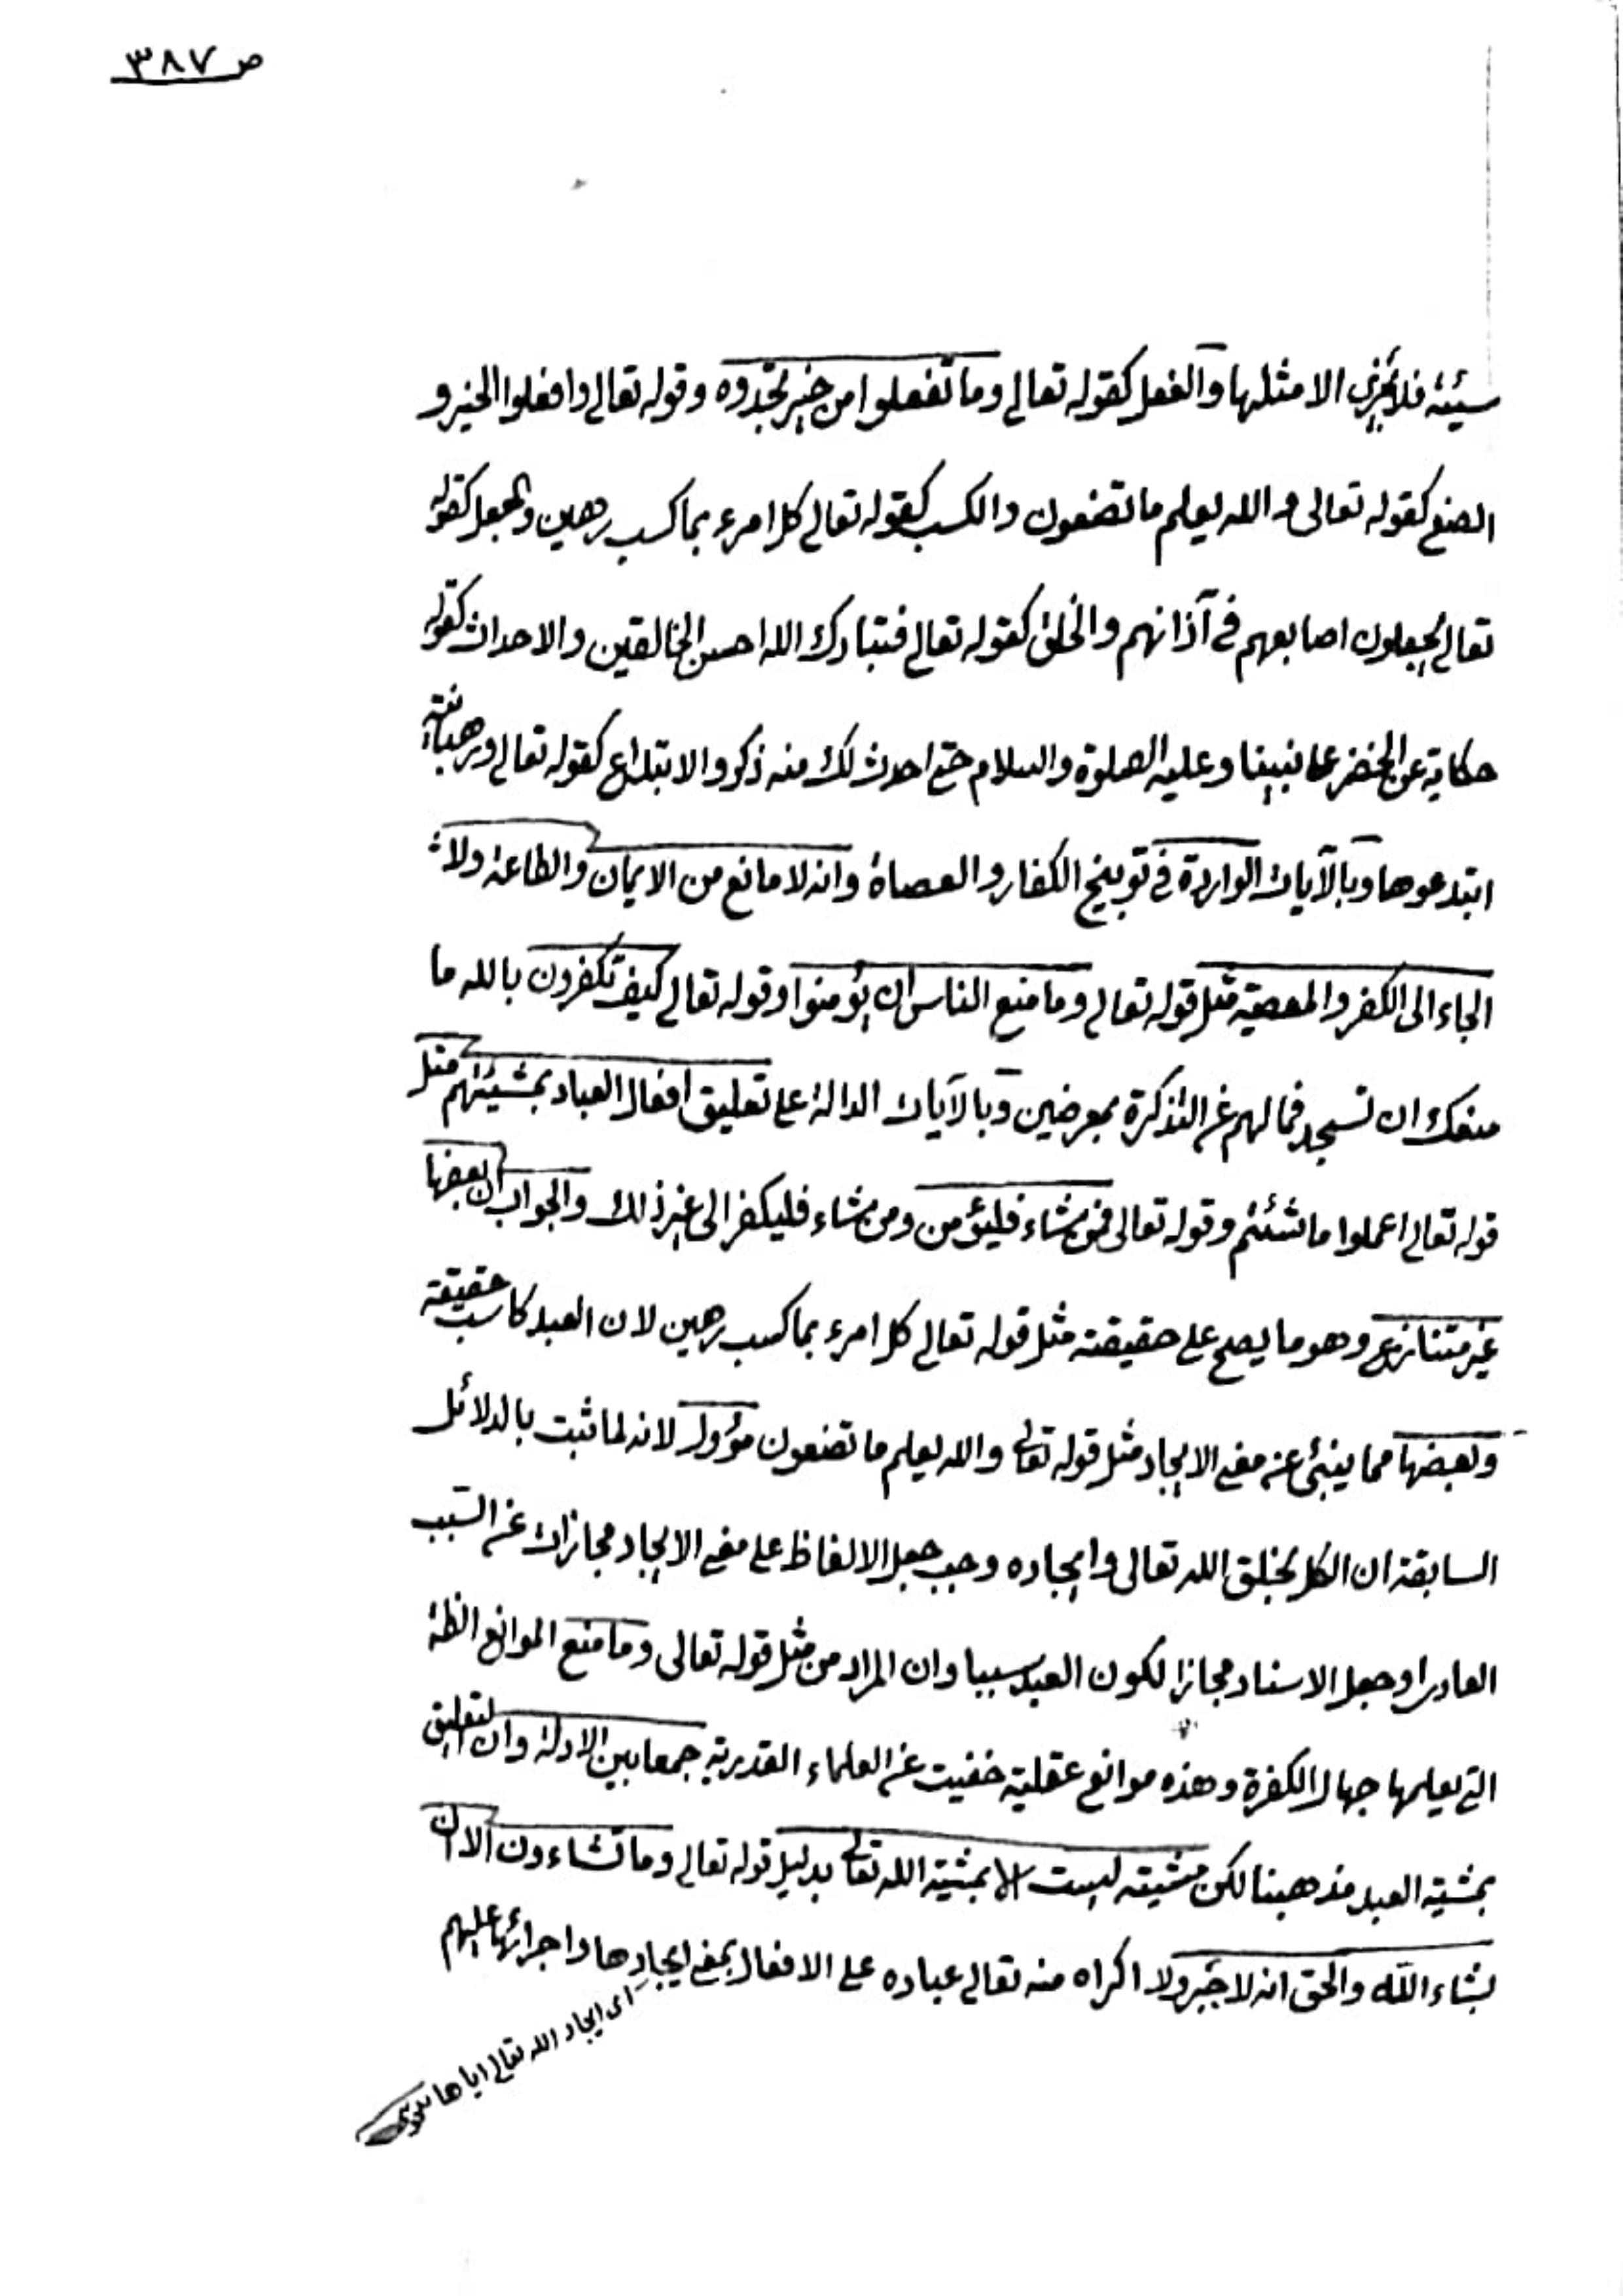 ص ٣٨٧
سيئة فلا يجزى الا مثلها والفعل كقوله تعالى وما تفعلوا من خير تجدوه وقوله تعالى وافعلوا الخير و
الصنع كقوله تعالى والله يعلم ما تصنعون والكسب كقوله تعالى كل امرء بما كسب رهين والجعل كقوله
تعالى يجعلون اصابعهم فى آذانهم والخلق كقوله تعالى فتبارك الله احسن الخالقين والاحداث كقوله
حكاية عن الخضر على نبينا وعليه الصلوة والسلام حتى احدث لك منه ذكر والابتداع كقوله تعالى ورهبانية
ابتدعوها وبالآيات الواردة فى توبيخ الكفار والعصاة وانه لا مانع من الايمان والطاعة ولا
الجاء الى الكفر والمعصية مثل قوله تعالى وما منع الناس ان يؤمنوا وقوله تعالى كيف تكفرون بالله ما
منعك ان تسجد فما لهم عن التذكرة معرضين وبالآيات الدالة على تعليق افعال العباد بمشيئتهم مثل
قوله تعالى اعملوا ما شئتم وقوله تعالى فمن شاء فليؤمن ومن شاء فليكفر الى غير ذالك والجواب ان بعضها
غير متنازع وهو ما يصح على حقيقته مثل قوله تعالى كل امرء بما كسب رهين لان العبد كاسب حقيقة
وبعضها مما ينبئ عن معنى الايجاد مثل قوله تعالى والله يعلم ما تصنعون مؤول لانه لما ثبت بالدلائل
السابقة ان الكل بخلق الله تعالى وايجاده وجب جعل الالفاظ على معنى الايجاد مجازات عن السبب
العادى او جعل الاسناد مجازا لكون العبد سببا وان المراد من مثل قوله تعالى وما منع الموانع الظاهرة
التى يعلمها جهال الكفرة وهذه موانع عقلية خفيت عن العلماء القدرية جمعا بين الادلة وان التعليق
بمشية العبد مذهبنا لكن مشيته ليست الا بمشية الله تعالى بدليل قوله تعالى وما تشاءون الا ان
يشاء الله والحق انه لا جبر ولا اكراه منه تعالى عباده على الافعال بمعنى ايجادها واجرائها عليهم
اى ايجاد الله تعالى اياها